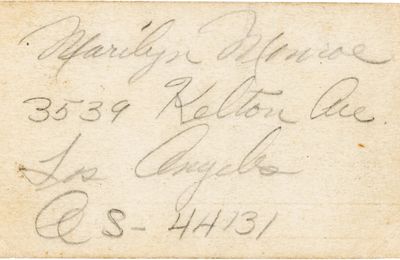 Marilyn Monroe
3539 Kelton Ave.
Los Angeles
AS- 44131